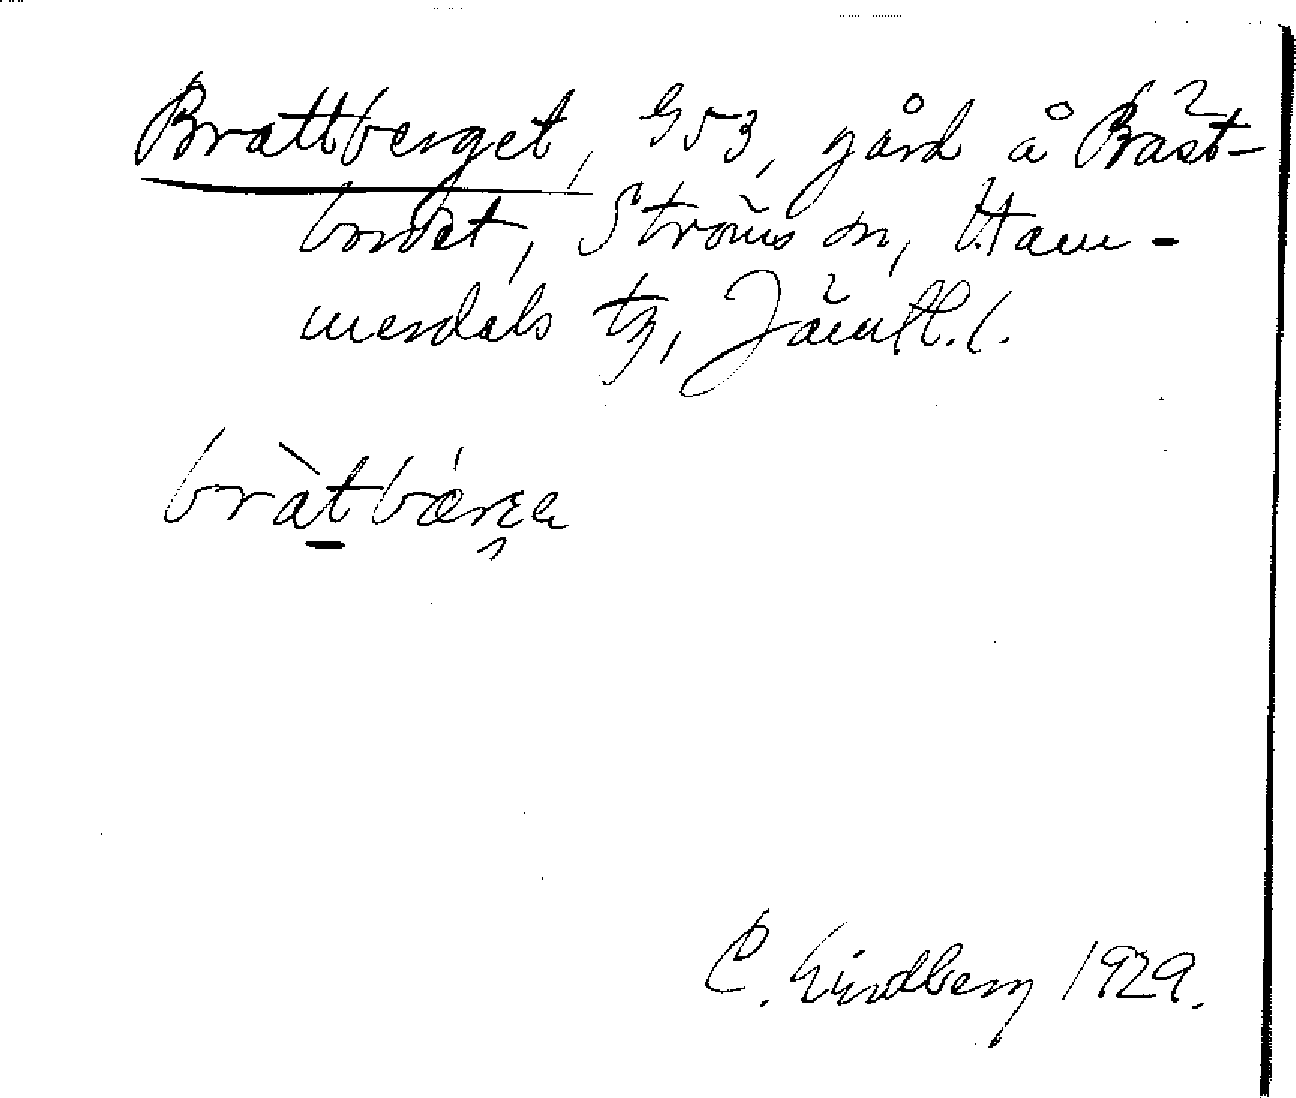 Brattberget, G53, gård å Präst-
bordet, Ströms sn, Ham-
merdals tg, Jämtl. l.
bràtbǽrɛa
C. Lindberg 1929.